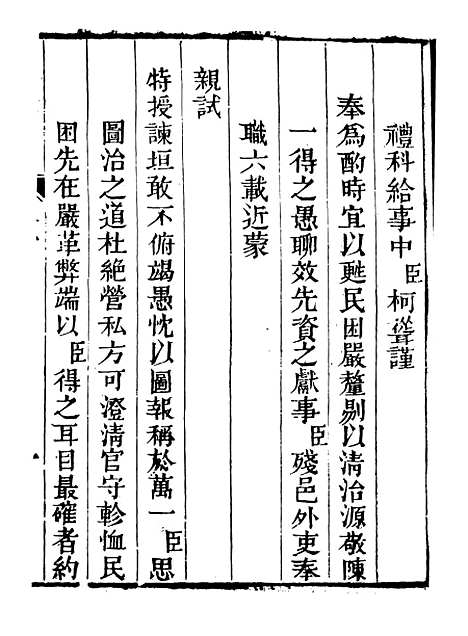 禮科給事中臣柯聳謹
奏為酌時宜以甦民困嚴釐剔以清治源敬陳
一得之愚聊效先資之獻事臣殘邑外吏奉
職六載近蒙
親試
特授諫垣敢不俯竭愚忱以圖報稱於萬一臣思
圖治之道杜絕營私方可澄清官守軫恤民
困先在嚴革弊端以臣得之耳目最確者約